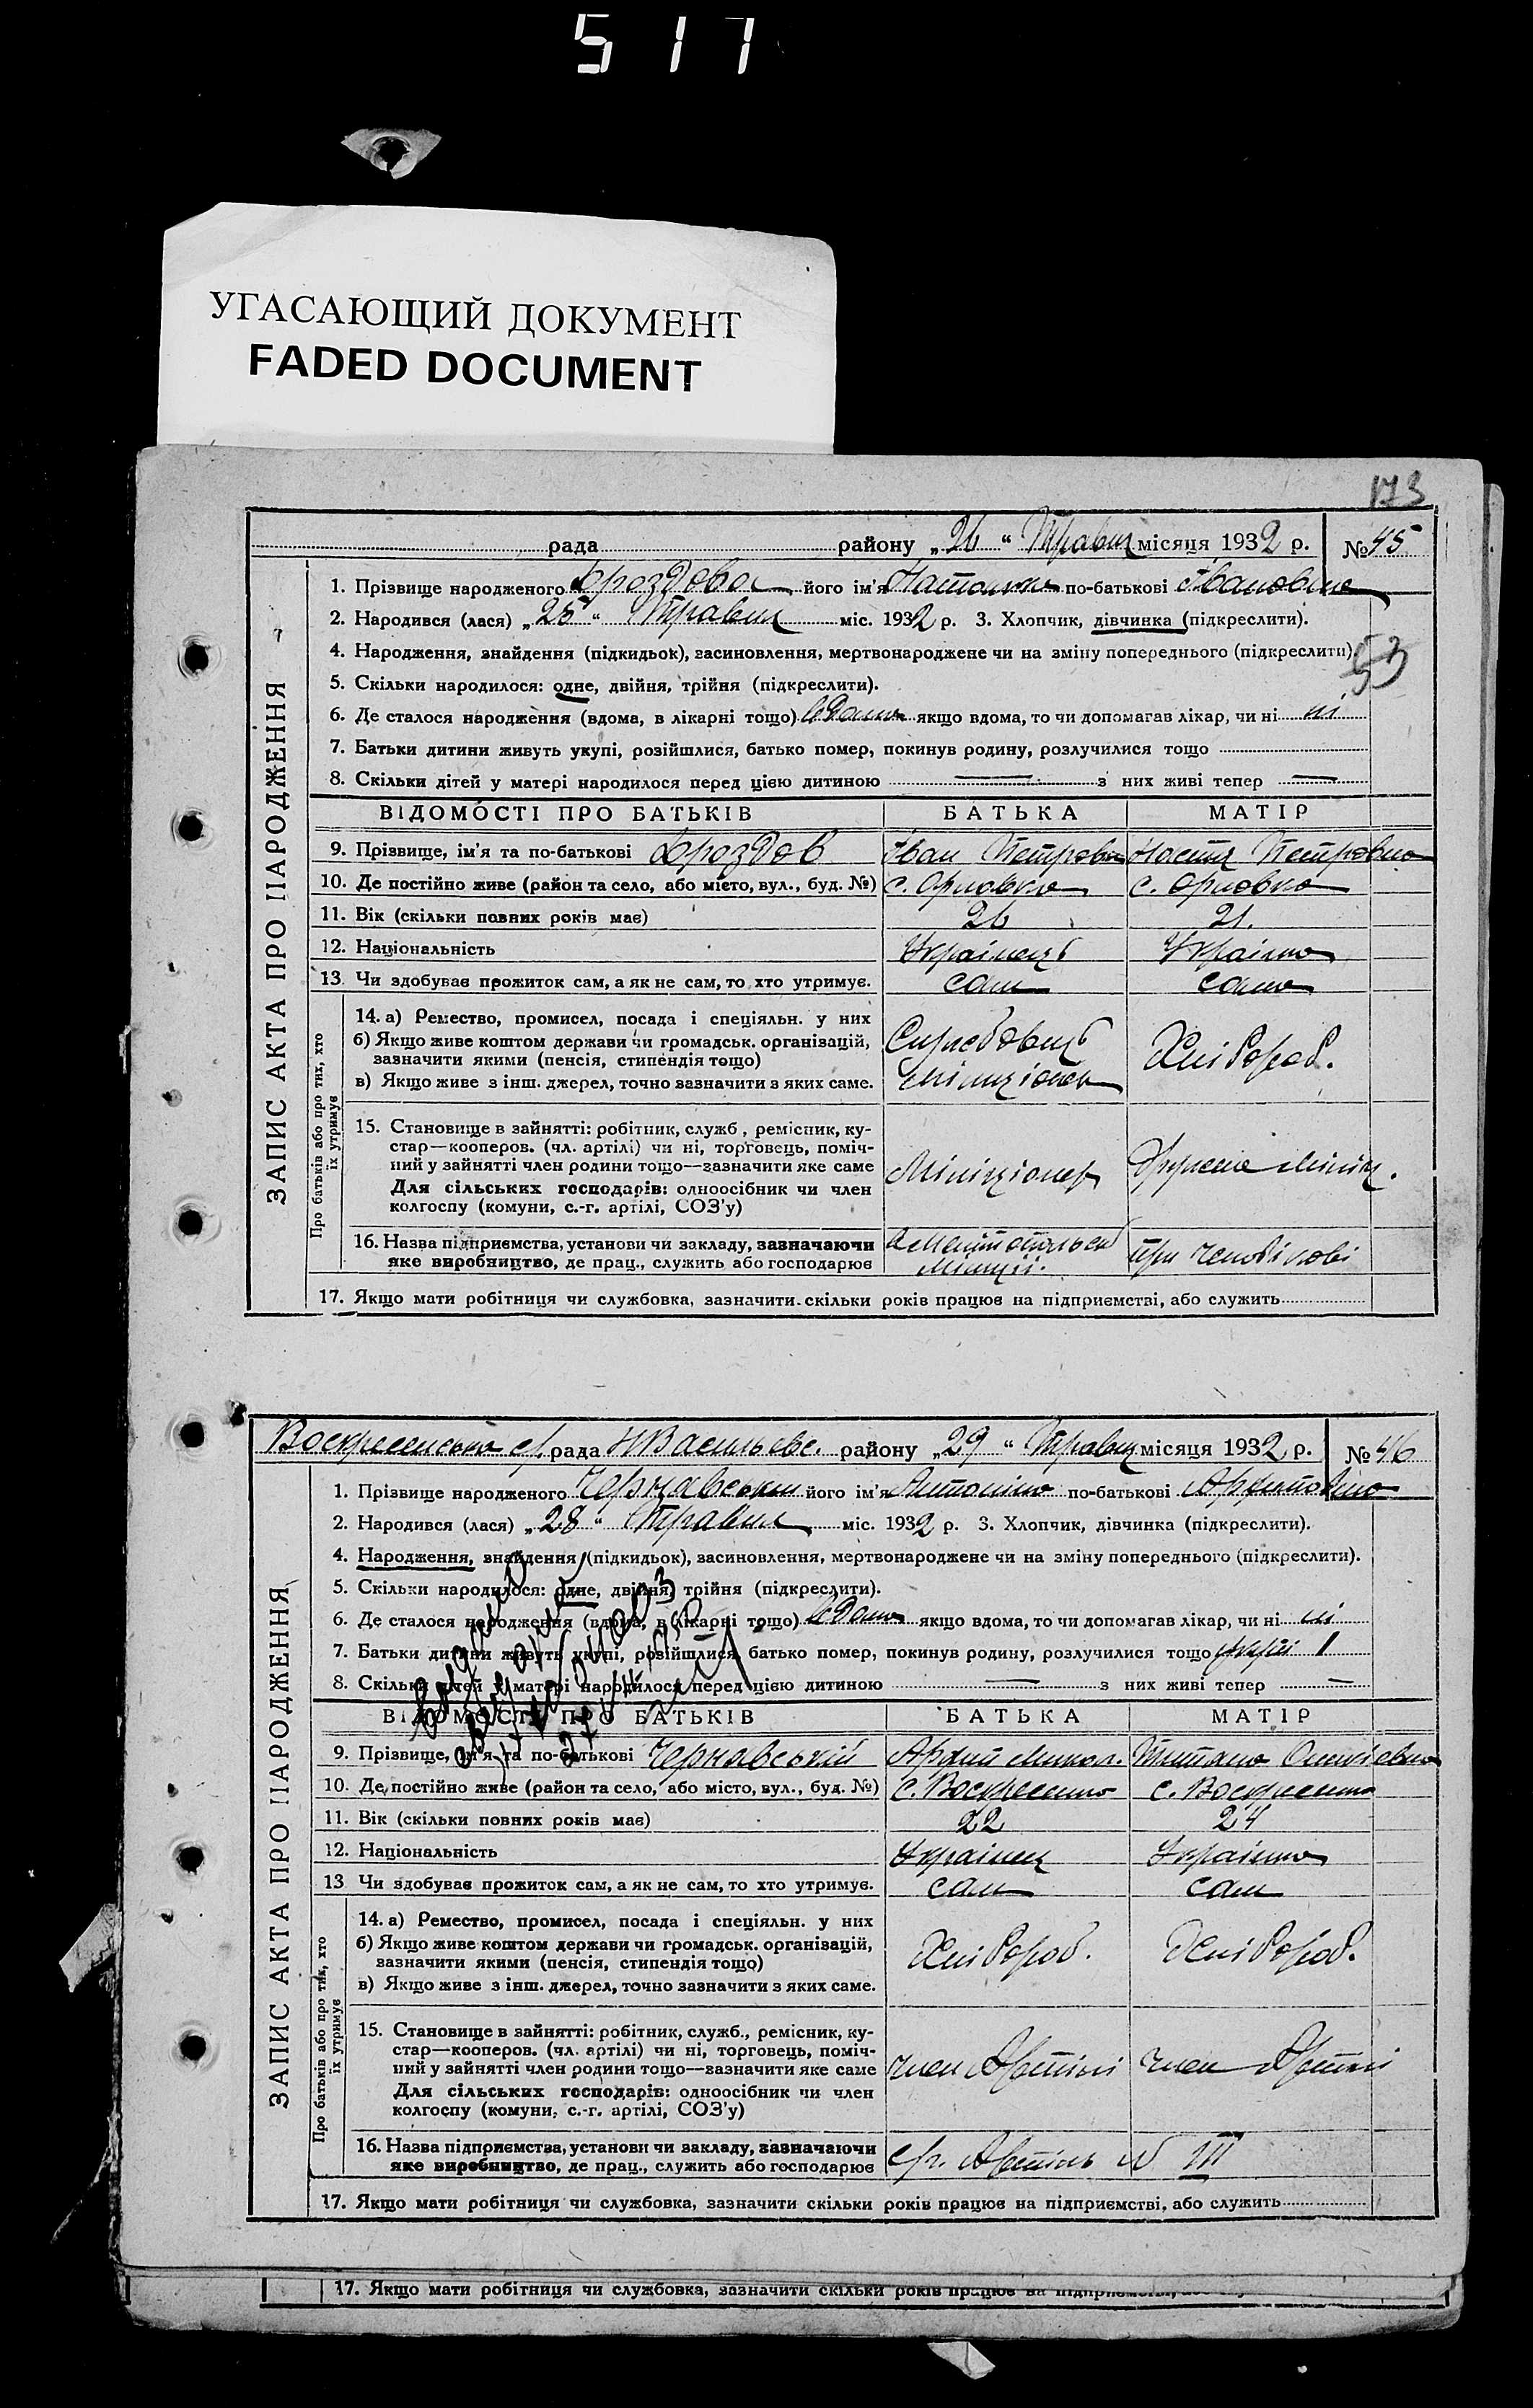 517
УГАСАЮЩИЙ ДОКУМЕНТ
FADED DOCUMENT
173
рада району „26“ Травня місяця 1932 р. № 45
ЗАПИС АКТА ПРО НАРОДЖЕННЯ
1. Прізвище народженого Дроздова його ім'я по-батькові Івановна
2. Народився (лася) „25“ Травня міс. 1932 р. 3. Хлопчик, дівчинка (підкреслити).
4. Народження, знайдення (підкидьок), засиновлення, мертвонароджене чи на зміну попереднього (підкреслити).
53
5. Скільки народилося: одне, двійня, трійня (підкреслити).
6. Де сталося народження (вдома, в лікарні тощо) Вдома якщо вдома, то чи допомагав лікар, чи ні ні
7. Батьки дитини живуть укупі, розійшлися, батько помер, покинув родину, розлучилися тощо
8. Скільки дітей у матері народилося перед цією дитиною — з них живі тепер —
ВІДОМОСТІ ПРО БАТЬКІВ БАТЬКА МАТІР
9. Прізвище, ім'я та по-батькові Дроздов Іван Петрович Настя Петровна
10. Де постійно живе (район та село, або місто, вул., буд. №) с. Орловка с. Орловка
11. Вік (скільки повних років має) 26 21.
12. Національність Українець Українка
13. Чи здобуває прожиток сам, а як не сам, то хто утримує. сам сама
Про батьків або про тих, хто їх утримує
14. а) Ремество, промисел, посада і спеціяльн. у них
б) Якщо живе коштом держави чи громадськ. організацій,
зазначити якими (пенсія, стипендія тощо)
в) Якщо живе з інш. джерел, точно зазначити з яких саме.
Службовець міліціонер Хлібороб.
15. Становище в зайнятті: робітник, служб., ремісник, ку-
стар—кооперов. (чл. артілі) чи ні, торговець, поміч-
ний у зайнятті член родини тощо—зазначити яке саме
Для сільських господарів: одноосібник чи член
колгоспу (комуни, с.-г. артілі, СОЗ'у)
Міліціонер Дружена міліц.
16. Назва підприємства, установи чи закладу, зазначаючи
яке виробництво, де прац., служить або господарює
міліції. при чоловікові
17. Якщо мати робітниця чи службовка, зазначити скільки років працює на підприємстві, або служить
Воскресенська с/рада НВасильевс. району „29“ Травня місяця 1932 р. № 46
ЗАПИС АКТА ПРО НАРОДЖЕННЯ
1. Прізвище народженого його ім'я Антоніна по-батькові
2. Народився (лася) „28“ Травня міс. 1932 р. 3. Хлопчик, дівчинка (підкреслити).
4. Народження, знайдення (підкидьок), засиновлення, мертвонароджене чи на зміну попереднього (підкреслити).
5. Скільки народилося: одне, двійня, трійня (підкреслити).
6. Де сталося народження (вдома, в лікарні тощо) Вдома якщо вдома, то чи допомагав лікар, чи ні ні
7. Батьки дитини живуть укупі, розійшлися, батько помер, покинув родину, розлучилися тощо укупі
8. Скільки дітей у матері народилося перед цією дитиною — з них живі тепер —
ВІДОМОСТІ ПРО БАТЬКІВ БАТЬКА МАТІР
9. Прізвище, ім'я та по-батькові Чернявський
10. Де постійно живе (район та село, або місто, вул., буд. №) с. Воскресенка с. Воскресенка
11. Вік (скільки повних років має) 22 24
12. Національність Українец Українка
13. Чи здобуває прожиток сам, а як не сам, то хто утримує. сам сам
Про батьків або про тих, хто їх утримує
14. а) Ремество, промисел, посада і спеціяльн. у них
б) Якщо живе коштом держави чи громадськ. організацій,
зазначити якими (пенсія, стипендія тощо)
в) Якщо живе з інш. джерел, точно зазначити з яких саме.
Хлібороб. Хлібороб.
15. Становище в зайнятті: робітник, служб., ремісник, ку-
стар—кооперов. (чл. артілі) чи ні, торговець, поміч-
ний у зайнятті член родини тощо—зазначити яке саме
Для сільських господарів: одноосібник чи член
колгоспу (комуни, с.-г. артілі, СОЗ'у)
член Артілі член Артілі
16. Назва підприємства, установи чи закладу, зазначаючи
яке виробництво, де прац., служить або господарює
с/г. Артіль № III
17. Якщо мати робітниця чи службовка, зазначити скільки років працює на підприємстві, або служить
17. Якщо мати робітниця чи службовка, зазначити скільки років працює на підприємстві,